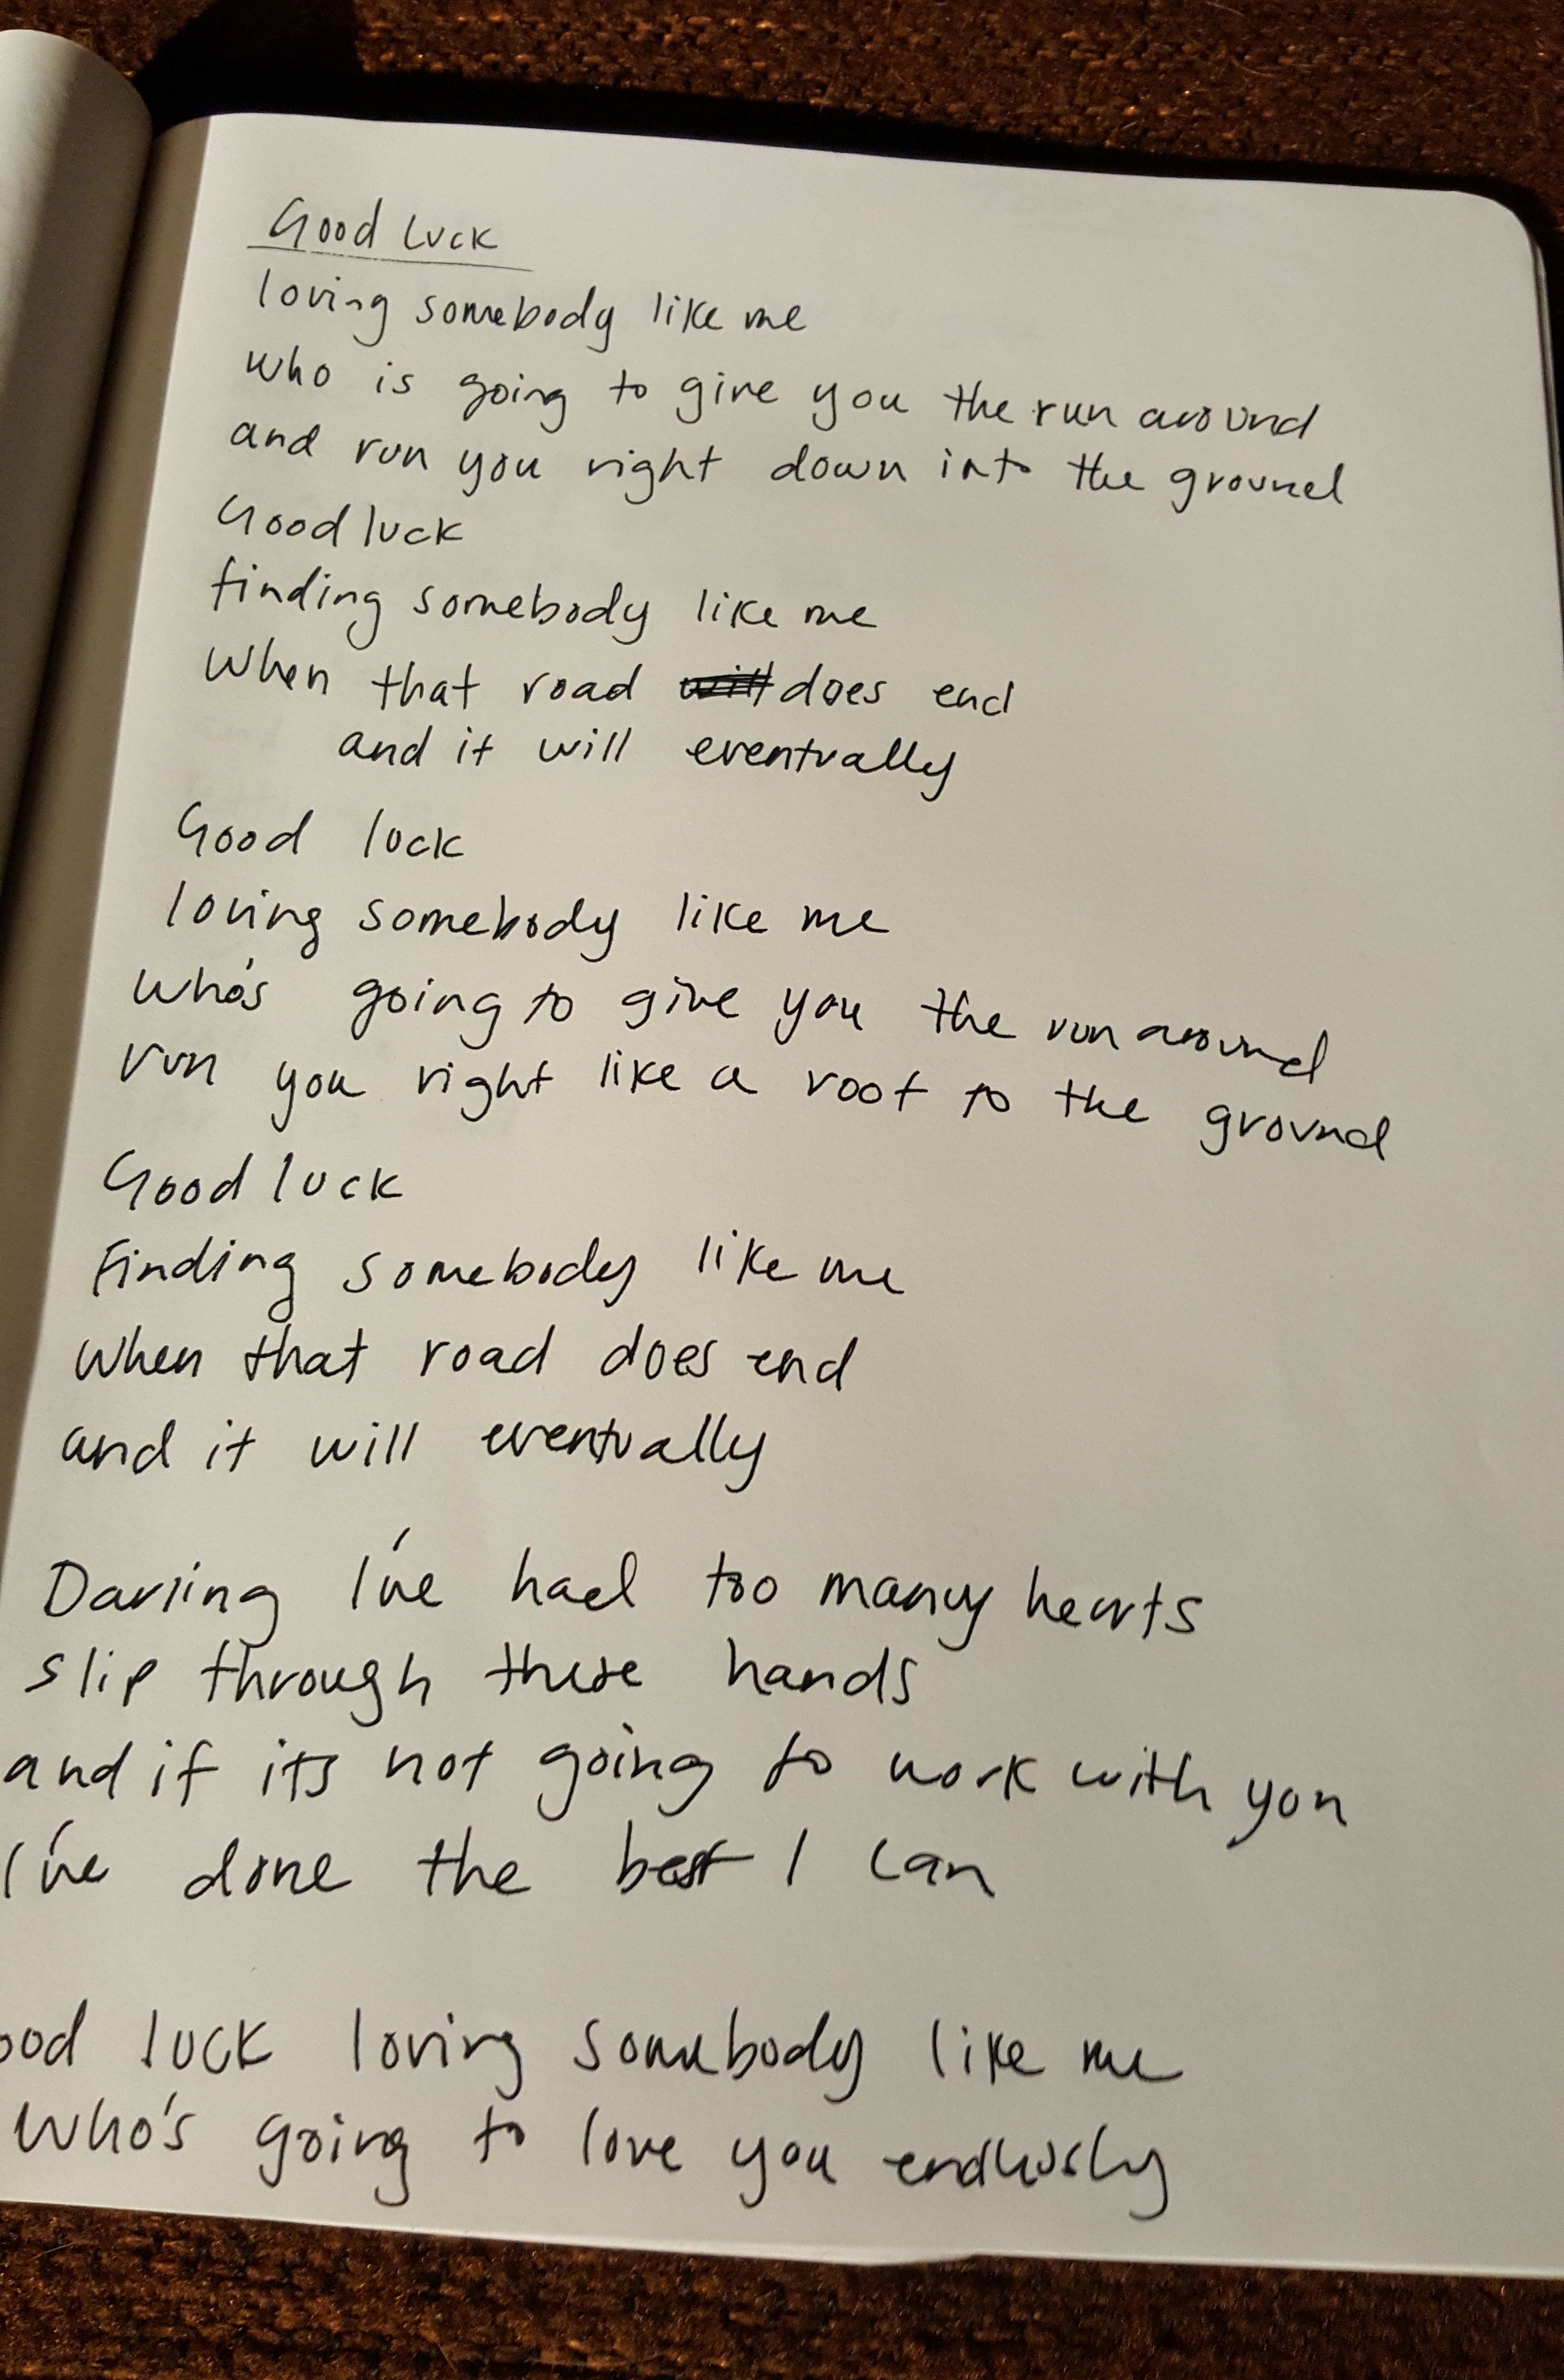 Good luck
loving somebody like me
who is going to give you the run around
and run you right down into the ground
Good luck
finding somebody like me
When that road will does end
and it will eventually
Good luck
loving somebody like me
who's going to give you the run around
run you right like a root to the ground
Good luck
Finding somebody like me
When that road does end
and it will eventually
Darling I've had too many hearts
slip through these hands
and if its not going to work with you
I've done the best I can
ood luck loving somebody like me
Who's going to love you endlessly